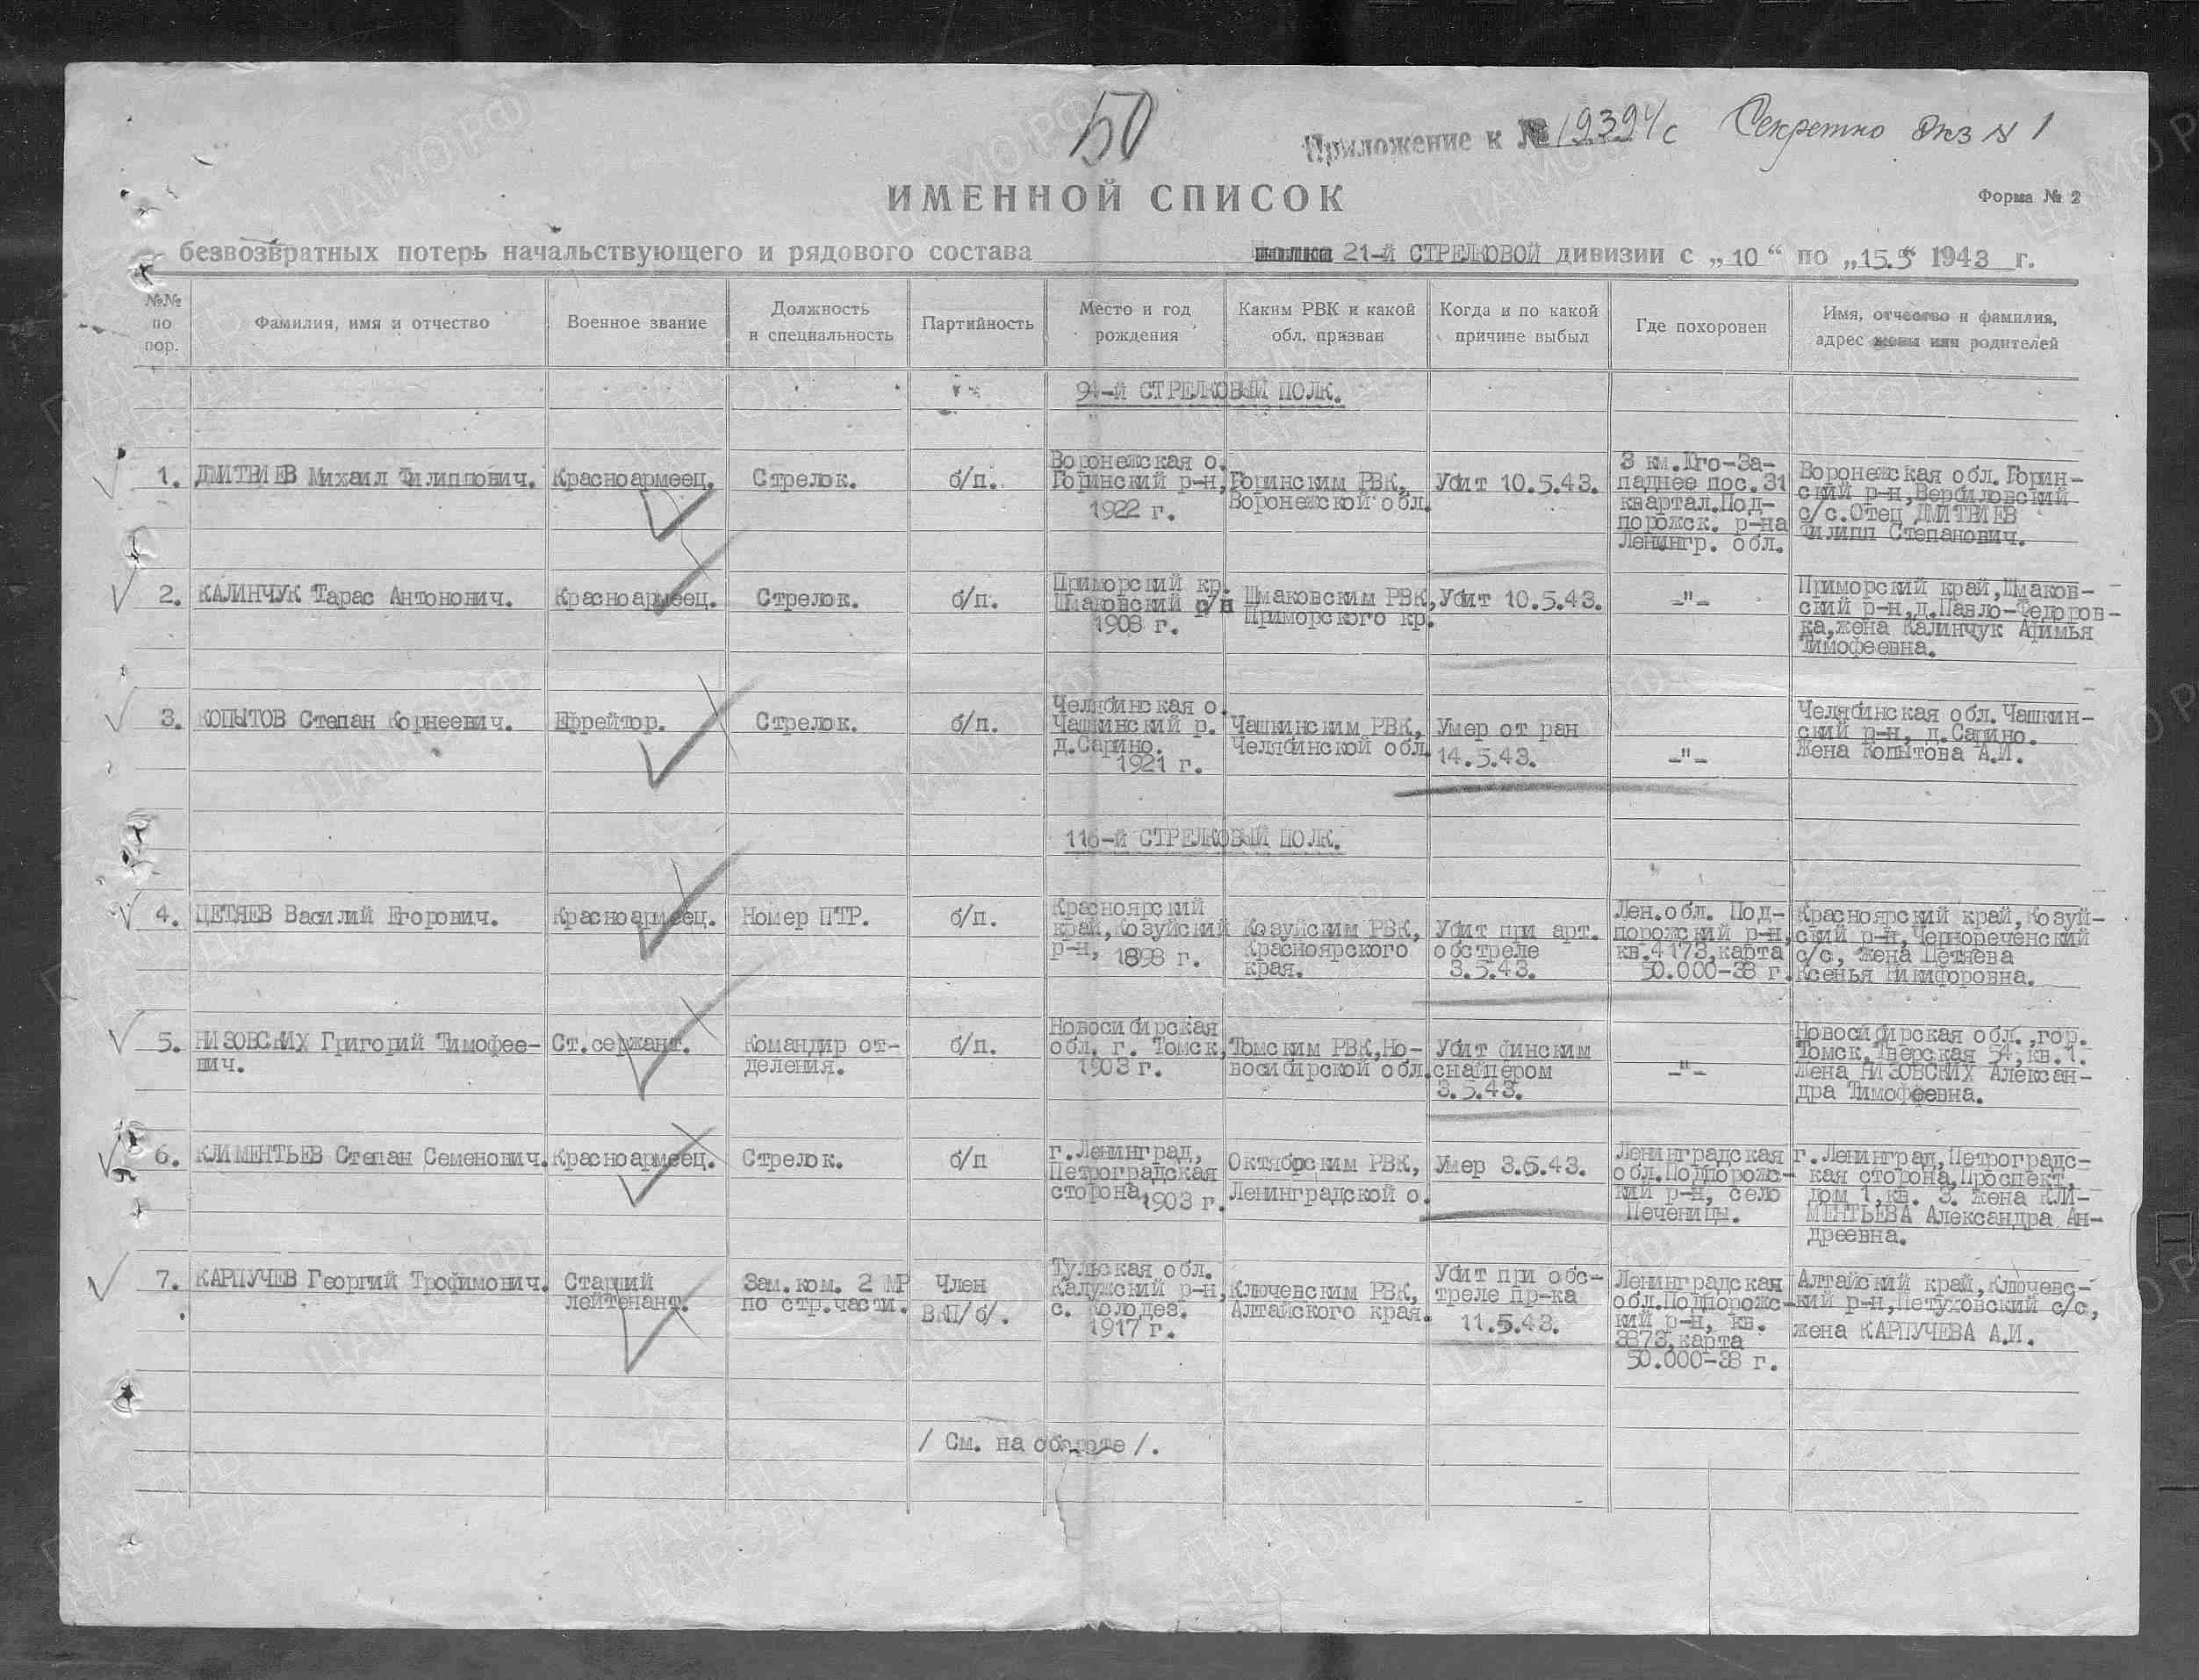 50
Приложение к № 19394с Секретно Экз № 1
ИМЕННОЙ СПИСОК
Форма № 2
безвозвратных потерь начальствующего и рядового состава полка 21-й СТРЕЛКОВОЙ дивизии с „10“ по „15.5“ 1943 г.
№№ по пор.
Фамилия, имя и отчество
Военное звание
Должность
и специальность
Партийность
Место и год
рождения
Каким РВК и какой
обл. призван
Когда и по какой
причине выбыл
Где похоронен
Имя, отчество и фамилия,
адрес жены или родителей
94-й СТРЕЛКОВЫЙ ПОЛК.
1.
ДМИТРИЕВ Михаил Филиппович.
Красноармеец.
Стрелок.
б/п.
Воронежская о.
Горинский р-н,
1922 г.
Горинским РВК,
Воронежской обл.
Убит 10.5.43.
3 км.Юго-За-
паднее пос.31
квартал.Под-
порожск. р-на
Ленингр. обл.
Воронежская обл.Горин-
ский р-н,Вербиловский
с/с.Отец ДМИТРИЕВ
Филипп Степанович.
2.
КАЛИНЧУК Тарас Антонович.
Красноармеец.
Стрелок.
б/п.
Приморский кр.
Шмаковский р/н
1908 г.
Шмаковским РВК,
Приморского кр.
Убит 10.5.43.
-"-
Приморский край,Шмаков-
ский р-н,д.Павло-Федоров-
ка,жена Калинчук Афимья
Тимофеевна.
3.
КОПЫТОВ Степан Корнеевич.
Ефрейтор.
Стрелок.
б/п.
Челябинская о.
Чашкинский р.
д.Сарино.
1921 г.
Чашкинским РВК,
Челябинской обл.
Умер от ран
14.5.43.
-"-
Челябинская обл.Чашкин-
ский р-н, д.Сарино.
Жена Копытова А.И.
116-й СТРЕЛКОВЫЙ ПОЛК.
4.
ЦЕТЯЕВ Василий Егорович.
Красноармеец.
Номер ПТР.
б/п.
Красноярский
край,Козуйский
р-н, 1898 г.
Козуйским РВК,
Красноярского
края.
Убит при арт.
обстреле
3.5.43.
Лен.обл. Под-
порожский р-н,
кв.4173,карта
50.000-38 г.
Красноярский край,Козуй-
ский р-н,Чернореченский
с/с, жена Цетяева
Ксенья Никифоровна.
5.
НИЗОВСКИХ Григорий Тимофее-
вич.
Ст.сержант.
Командир от-
деления.
б/п.
Новосибирская
обл. г. Томск,
1903 г.
Томским РВК,Но-
восибирской обл.
Убит финским
снайпером
3.5.43.
-"-
Новосибирская обл.,гор.
Томск.Тверская 54,кв.1.
Жена НИЗОВСКИХ Алексан-
дра Тимофеевна.
6.
КЛИМЕНТЬЕВ Степан Семенович.
Красноармеец.
Стрелок.
б/п
г.Ленинград,
Петроградская
сторона,
1903 г.
Октябрским РВК,
Ленинградской о.
Умер 3.5.43.
Ленинградская
обл.Подпорожс-
кий р-н, село
Печеницы.
г.Ленинград,Петроградс-
кая сторона,Проспект,
дом 1,кв. 3. жена КЛИ-
МЕНТЬЕВА Александра Ан-
дреевна.
7.
КАРПУЧЕВ Георгий Трофимович.
Старший
лейтенант.
Зам.ком. 2 МР
по стр.части.
Член
ВКП/б/.
Тульская обл.
Калужский р-н,
с. Колодез.
1917 г.
Ключевским РВК,
Алтайского края.
Убит при обс-
треле пр-ка
11.5.43.
Ленинградская
обл.Подпорожс-
кий р-н, кв.
3873,карта
50.000-38 г.
Алтайский край,Ключевс-
кий р-н,Петуховский с/с,
жена КАРПУЧЕВА А.И.
/ См. на обороте /.